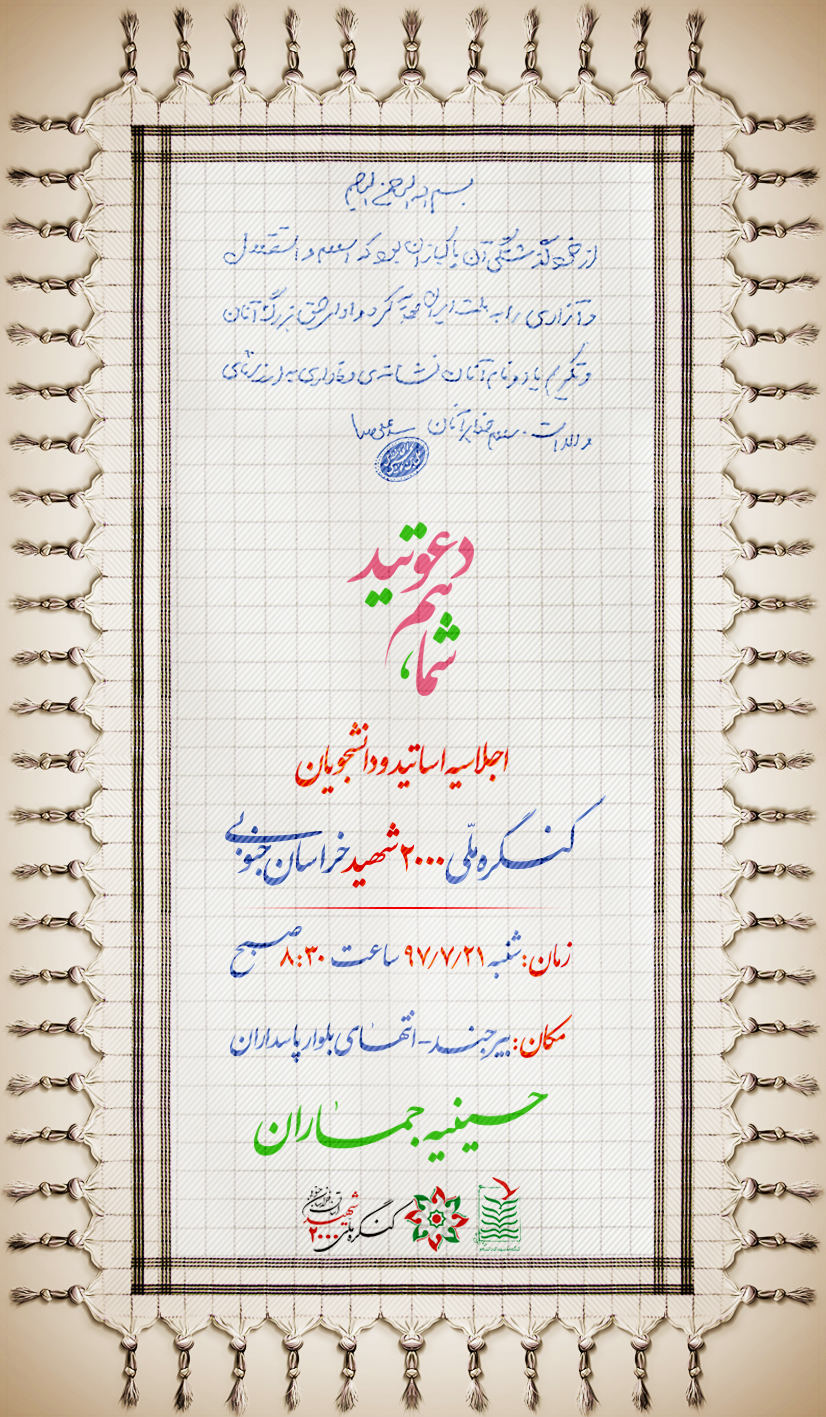 بسم الله الرحمن الرحیم
از خودگذشتگی آن پاکبازان بود که اسلام و استقلال
و آزادی را به ملت ایران هدیه کرد و ادای حق بزرگ آنان
و تکریم یاد و نام آنان نشانه‌ی وفاداری به ارزشهای
والا است. سلام خدا بر آنان
دعوتید
هم
شما،
اجلاسیه اساتید و دانشجویان
کنگره ملّی ۲۰۰۰ شهید خراسان جنوبی
زمان: شنبه ۹۷/۷/۲۱ ساعت ۸:۳۰ صبح
مکان: بیرجند - انتهای بلوار پاسداران
حسینیه جماران
کنگره ملی ۲۰۰۰ شهید استان خراسان جنوبی